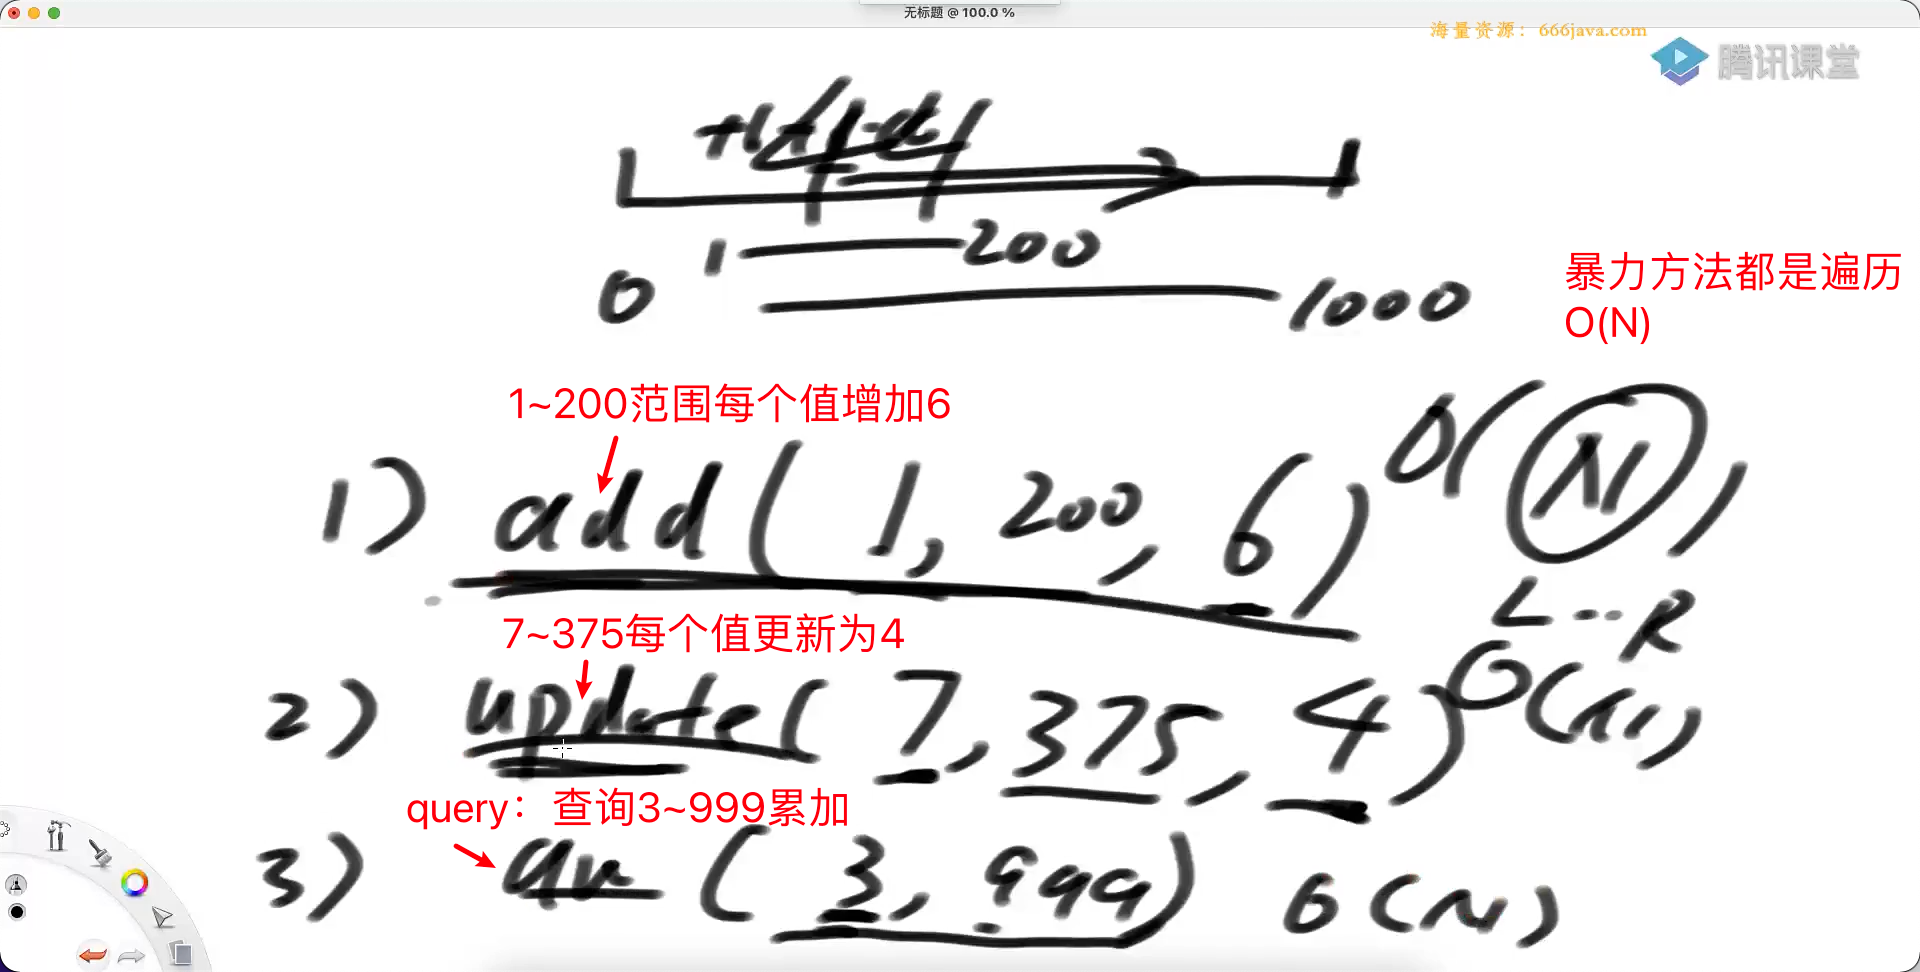 无标题 @ 100.0 %
海量资源：666java.com
腾讯课堂
1 200
0 1000
暴力方法都是遍历
O(N)
1~200范围每个值增加6
1) add(1, 200, 6) O(N)
L...R
7~375每个值更新为4
2) update(7, 375, 4) O(N)
query：查询3~999累加
3) qu(3, 999) O(N)